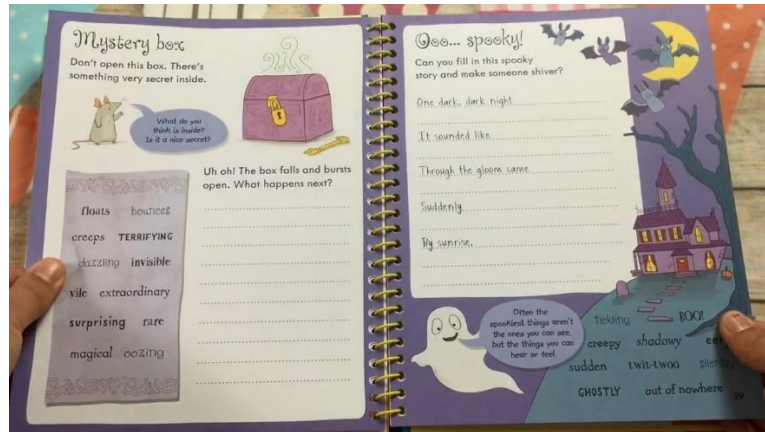 Mystery box
Don't open this box. There's
something very secret inside.
What do you
think is inside?
Is it a nice secret?
Uh oh! The box falls and bursts
open. What happens next?
floats bounces
creeps TERRIFYING
dazzling invisible
vile extraordinary
surprising rare
magical oozing
Ooo... spooky!
Can you fill in this spooky
story and make someone shiver?
One dark, dark night
It sounded like
Through the gloom came
Suddenly
By sunrise,
Often the
spookiest things aren't
the ones you can see,
but the things you can
hear or feel.
tickling BOO!
creepy shadowy
sudden twit-twoo
GHOSTLY out of nowhere